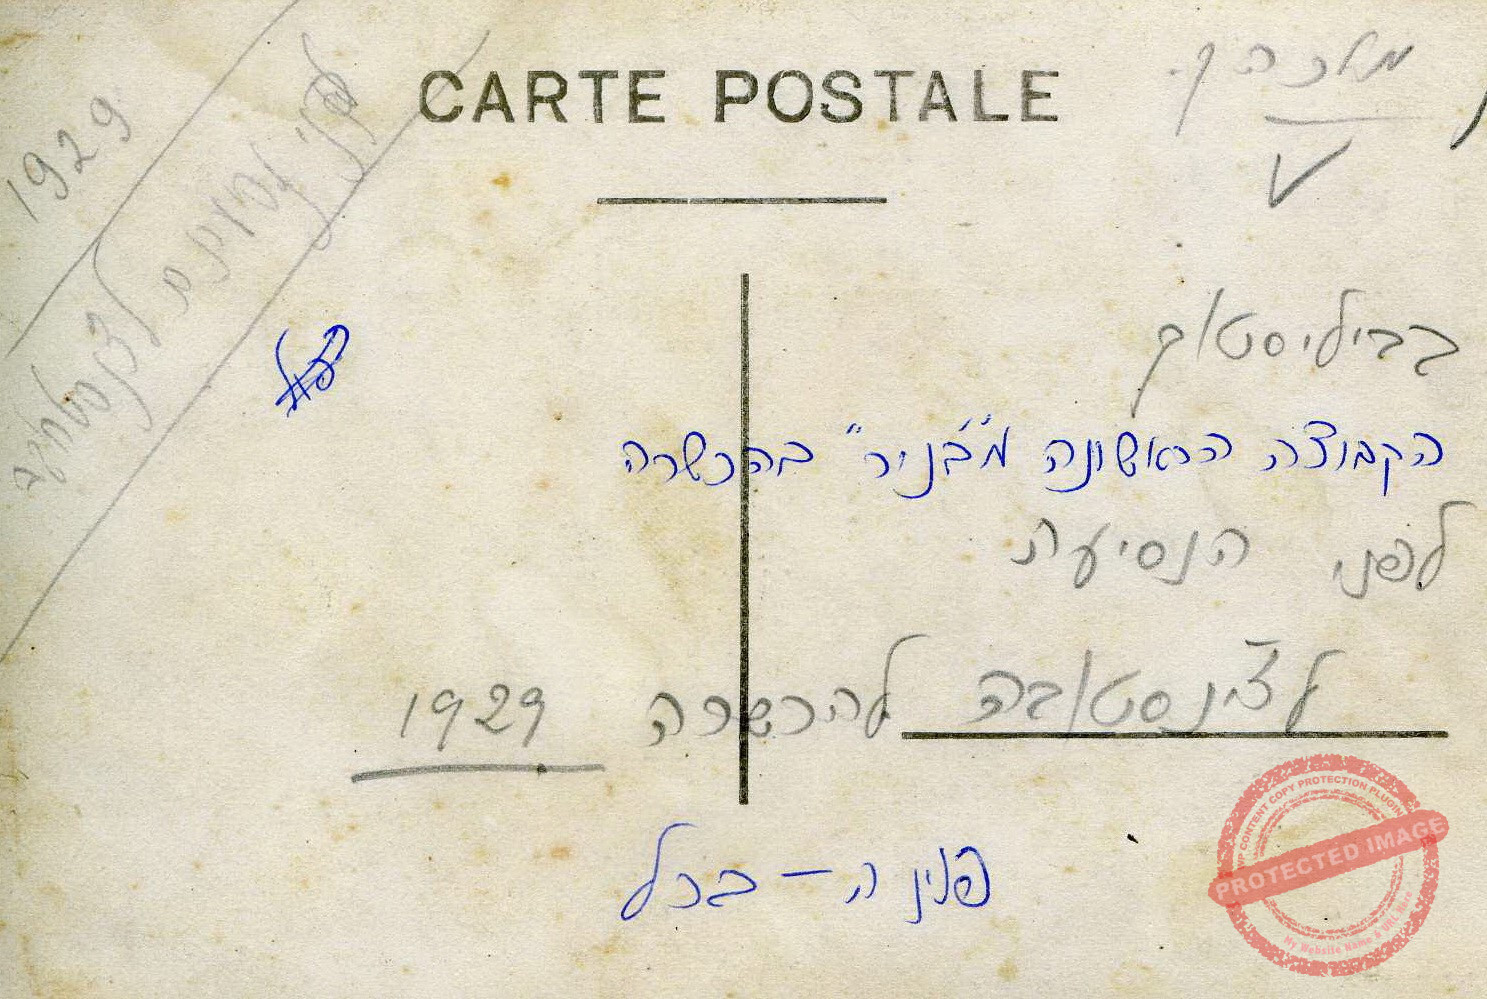 CARTE POSTALE
1929
בביליסטוק
הקבוצה הראשונה מ"בניר" בהכשרה
לפני הנסיעה
לצ'נסטובה להכשרה 1929
פנינה - ברל
WP CONTENT COPY PROTECTION PLUGIN
PROTECTED IMAGE
My Website Name & URL Here